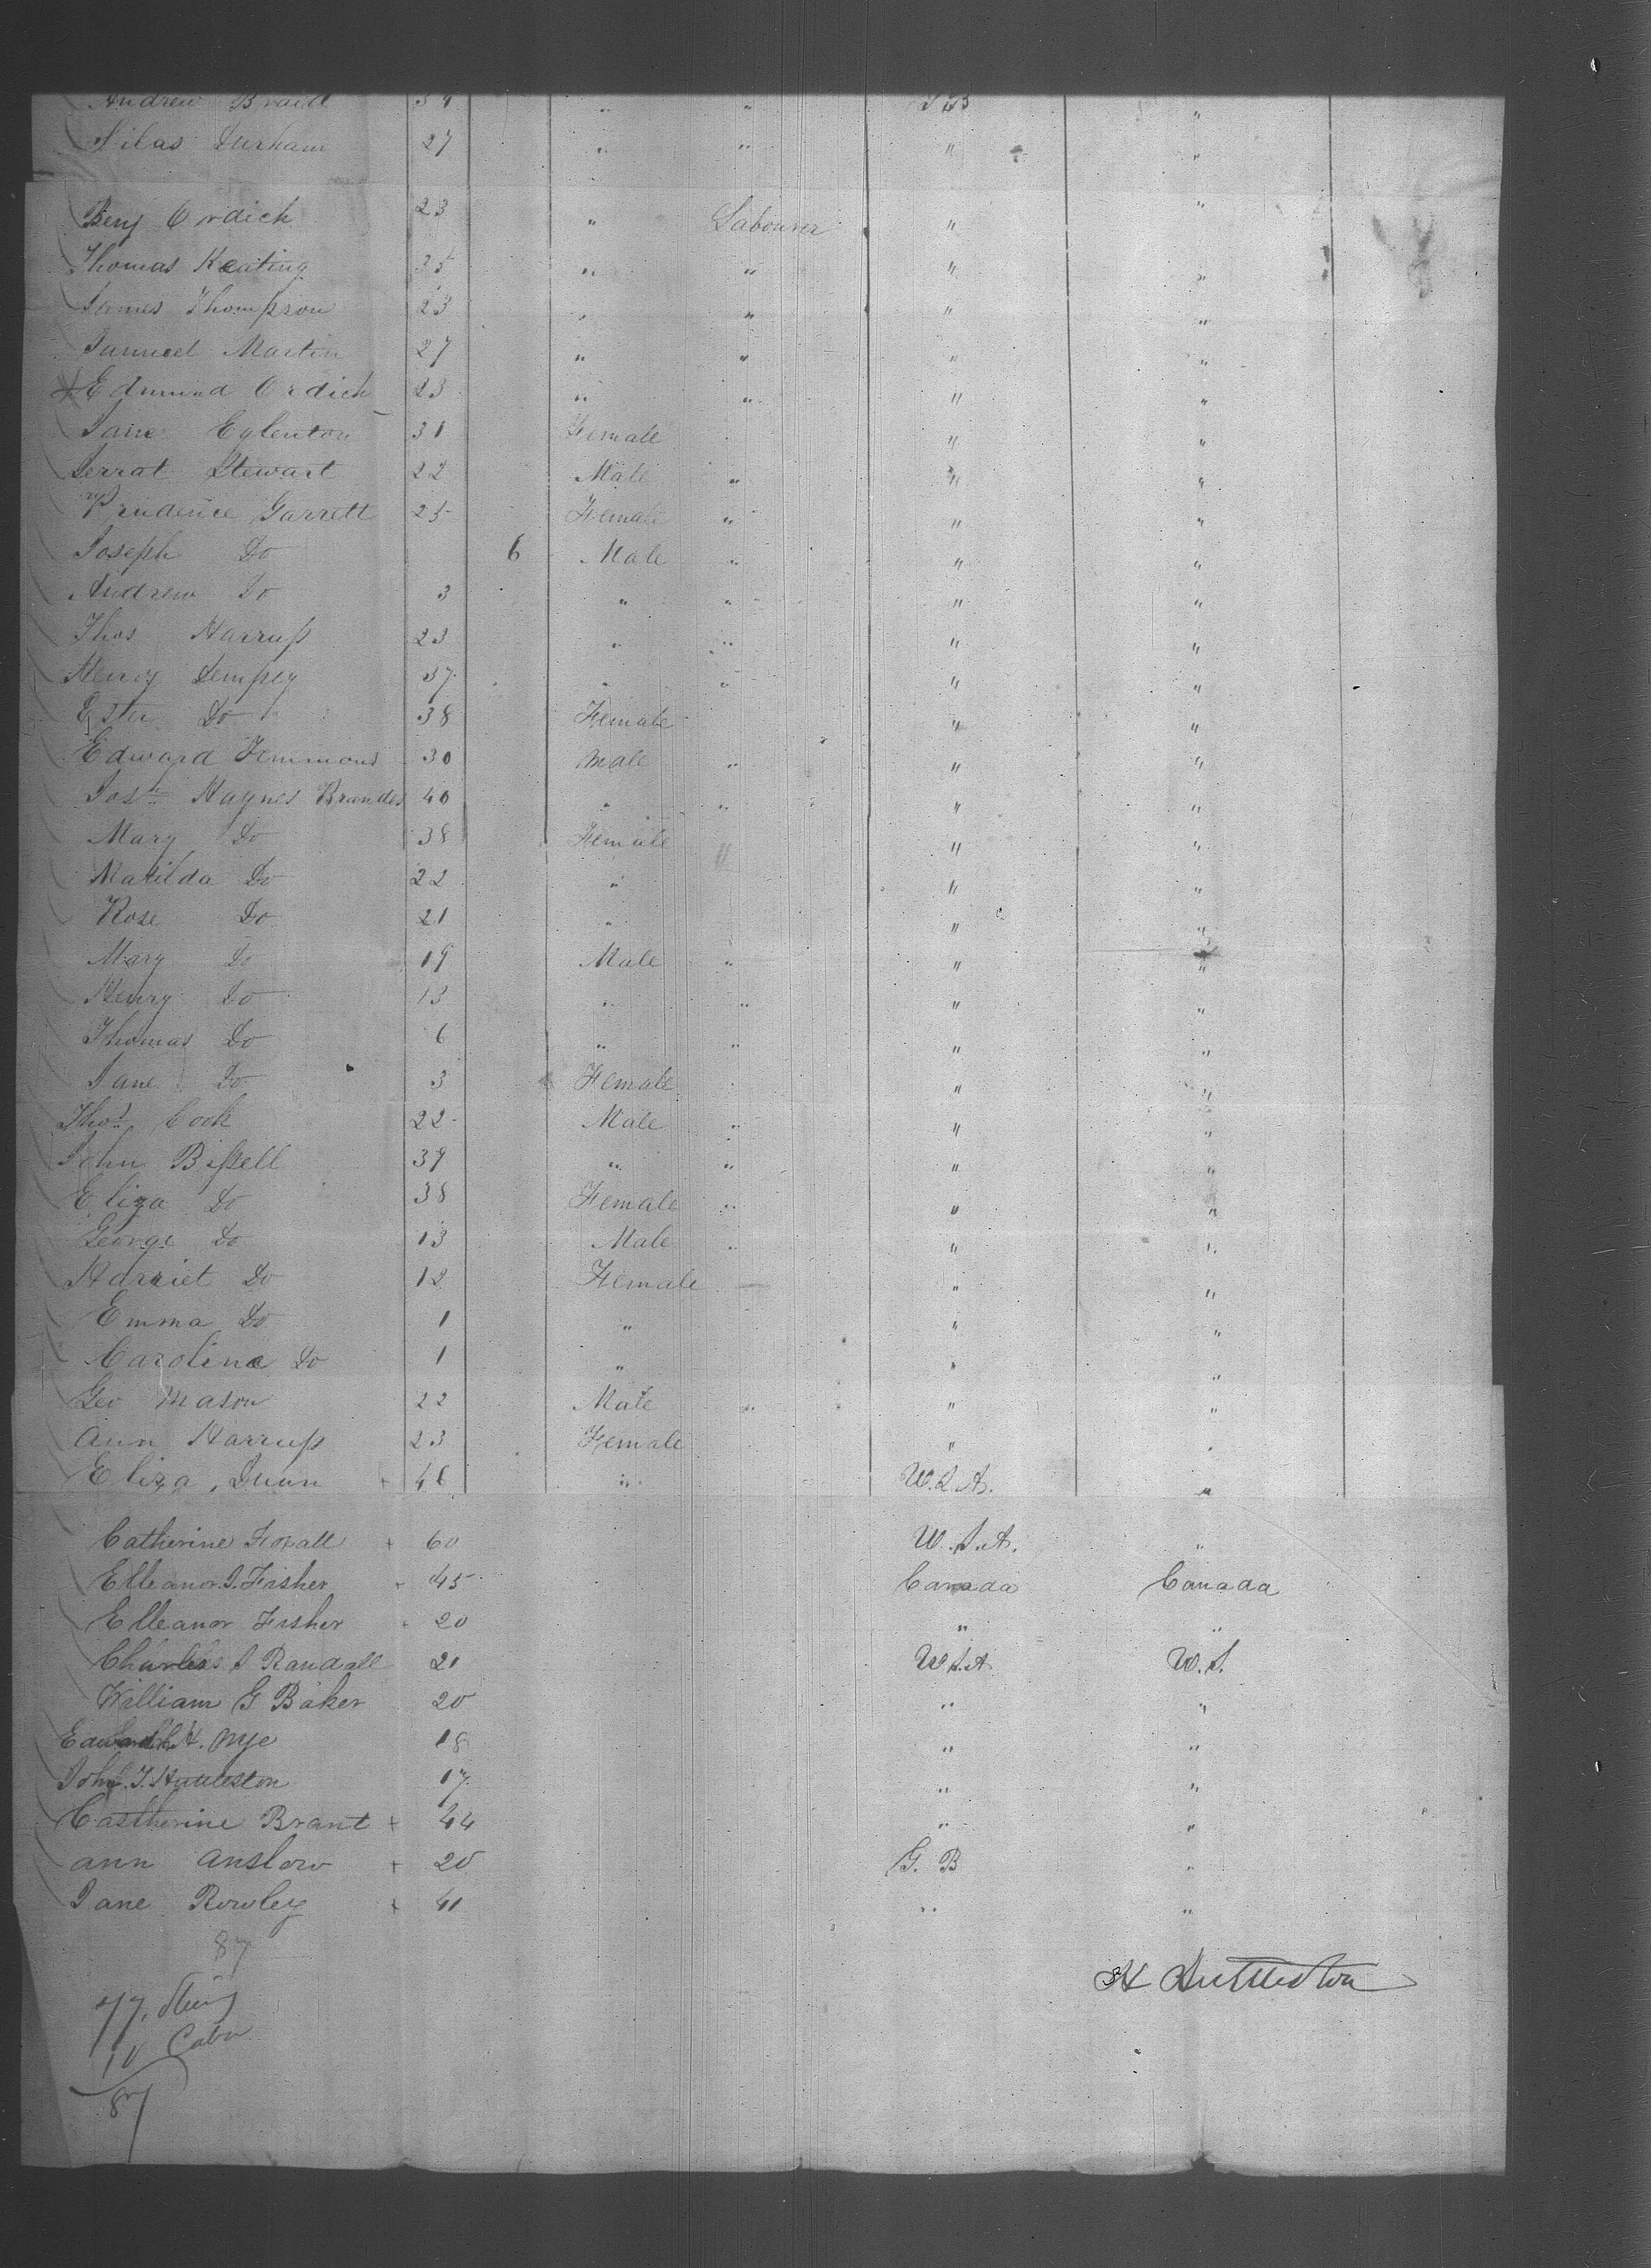 Andrew Braid 34 " " GB "
Silas Durham 27 " " " "
Benj Ordich 23 " Labourer " "
Thomas Keating 35 " " " "
James Thompson 23 " " " "
Samuel Martin 27 " " " "
Edmund Ordich 23 " " " "
Jane Eglenton 31 Female " "
Stewart 22 Male " " "
Prudence Garrett 25 Female " " "
Joseph Do 6 Male " " "
Andrew Do 3 " " " "
Thos Harrup 23 " " " "
Henry Dempsey 37 " " " "
Ester Do 38 Female " "
Edward Timmons 30 Male " " "
Josh Haynes Brandes 40 " " " "
Mary Do 38 Female " " "
Matilda Do 22 " " "
Rose Do 21 " " "
Mary Do 19 Male " " "
Henry Do 13 " " " "
Thomas Do 6 " " " "
Jane Do 3 Female " "
Thos Cook 22 Male " " "
John Bissell 39 " " " "
Eliza Do 38 Female " " "
George Do 13 Male " " "
Harriet Do 12 Female — " "
Emma Do 1 " " "
Caroline Do 1 " " "
Geo Mason 22 Male " " "
Ann Harrup 23 Female " "
Eliza Dunn + 46 " U.S.A. "
Catherine Foxall + 60 U.S.A. "
Elleanor J. Fisher + 45 Canada Canada
Elleanor Fisher + 20 " "
Charles S Randall 21 U.S.A U.S.
William G Baker 20 " "
Edward H. Nye 18 " "
John T. Huttleston 17 " "
Castherine Brant + 44 " "
Ann Anslow + 20 G. B "
Jane Rowley + 41 " "
87
H Huttleston
77.
10 Cabn
87